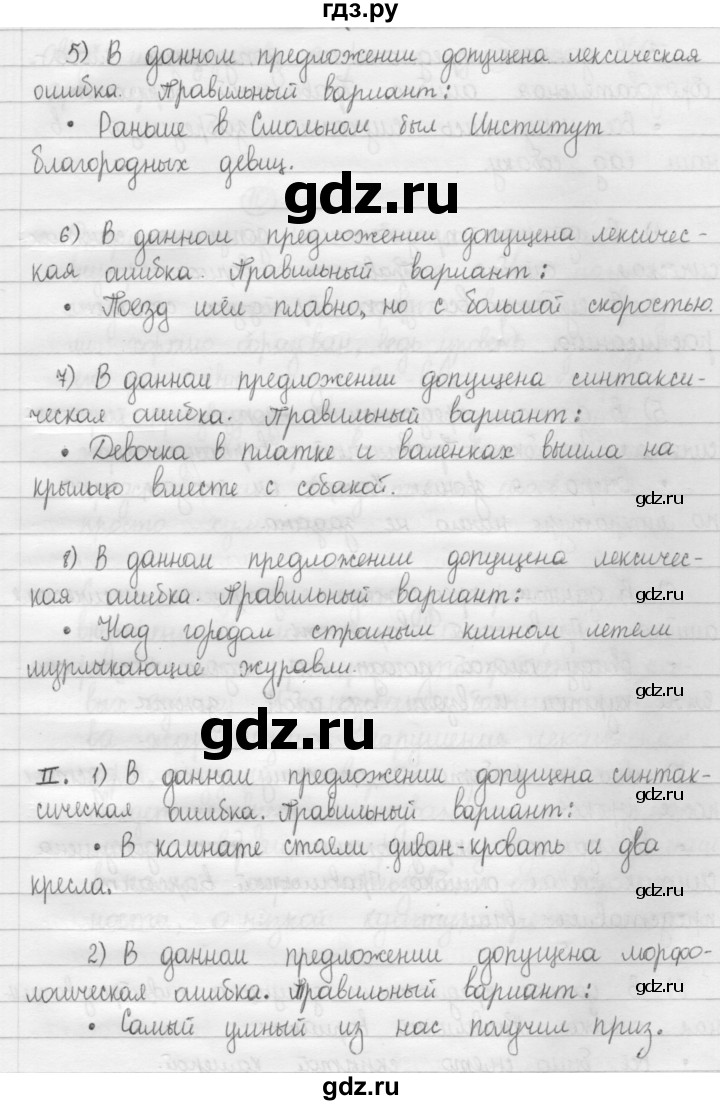 гдз.ру
5) В данном предложении допущена лексическая
ошибка. Правильный вариант:
• Раньше в Смольном был Институт
благородных девиц.
gdz.ru
6) В данном предложении допущена лексичес-
кая ошибка. Правильный вариант:
• Поезд шёл плавно, но с большой скоростью.
7) В данном предложении допущена синтакси-
ческая ошибка. Правильный вариант:
• Девочка в платке и валенках вышла на
крыльцо вместе с собакой.
gdz.ru
8) В данном предложении допущена лексичес-
кая ошибка. Правильный вариант:
gdz.ru
• Над городом стройным клином летели
мурлыкающие журавли.
gdz.ru
gdz.ru
II. 1) В данном предложении допущена синтак-
сическая ошибка. Правильный вариант:
• В комнате стояли диван-кровать и два
кресла.
gdz.ru
2) В данном предложении допущена морфо-
логическая ошибка. Правильный вариант:
gdz.ru
• Самый умный из нас получил приз.
gdz.ru
gdz.ru